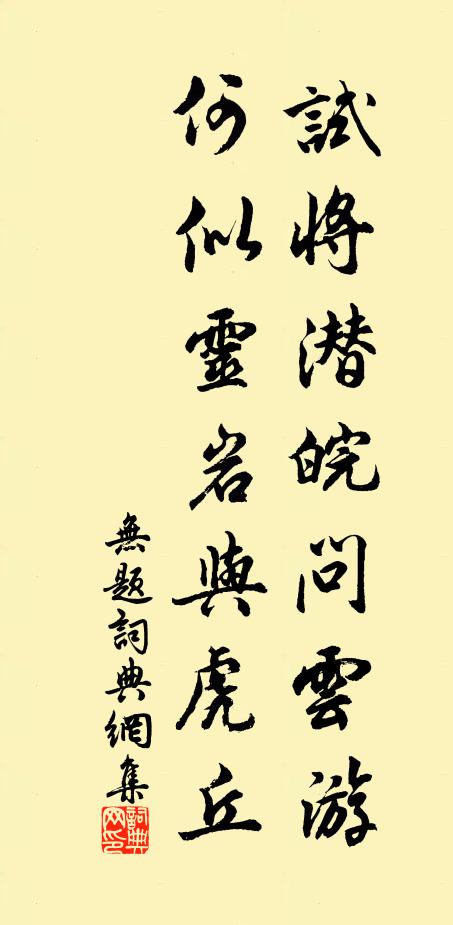 試將潜皖問雲游
何似靈岩與虎丘
無題詞典網集
詞典網印